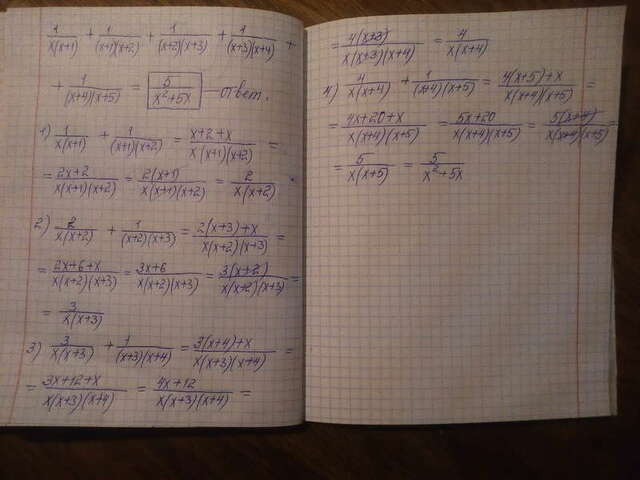 1/x(x+1) + 1/(x+1)(x+2) + 1/(x+2)(x+3) + 1/(x+3)(x+4) +
+ 1/(x+4)(x+5) = 5/x²+5x — ответ.
1) 1/x(x+1) + 1/(x+1)(x+2) = x+2+x/x(x+1)(x+2) =
= 2x+2/x(x+1)(x+2) = 2(x+1)/x(x+1)(x+2) = 2/x(x+2)
2) 2/x(x+2) + 1/(x+2)(x+3) = 2(x+3)+x/x(x+2)(x+3) =
= 2x+6+x/x(x+2)(x+3) = 3x+6/x(x+2)(x+3) = 3(x+2)/x(x+2)(x+3) =
= 3/x(x+3)
3) 3/x(x+3) + 1/(x+3)(x+4) = 3(x+4)+x/x(x+3)(x+4) =
= 3x+12+x/x(x+3)(x+4) = 4x+12/x(x+3)(x+4) =
= 4(x+3)/x(x+3)(x+4) = 4/x(x+4)
4) 4/x(x+4) + 1/(x+4)(x+5) = 4(x+5)+x/x(x+4)(x+5) =
= 4x+20+x/x(x+4)(x+5) = 5x+20/x(x+4)(x+5) = 5(x+4)/x(x+4)(x+5) =
= 5/x(x+5) = 5/x²+5x